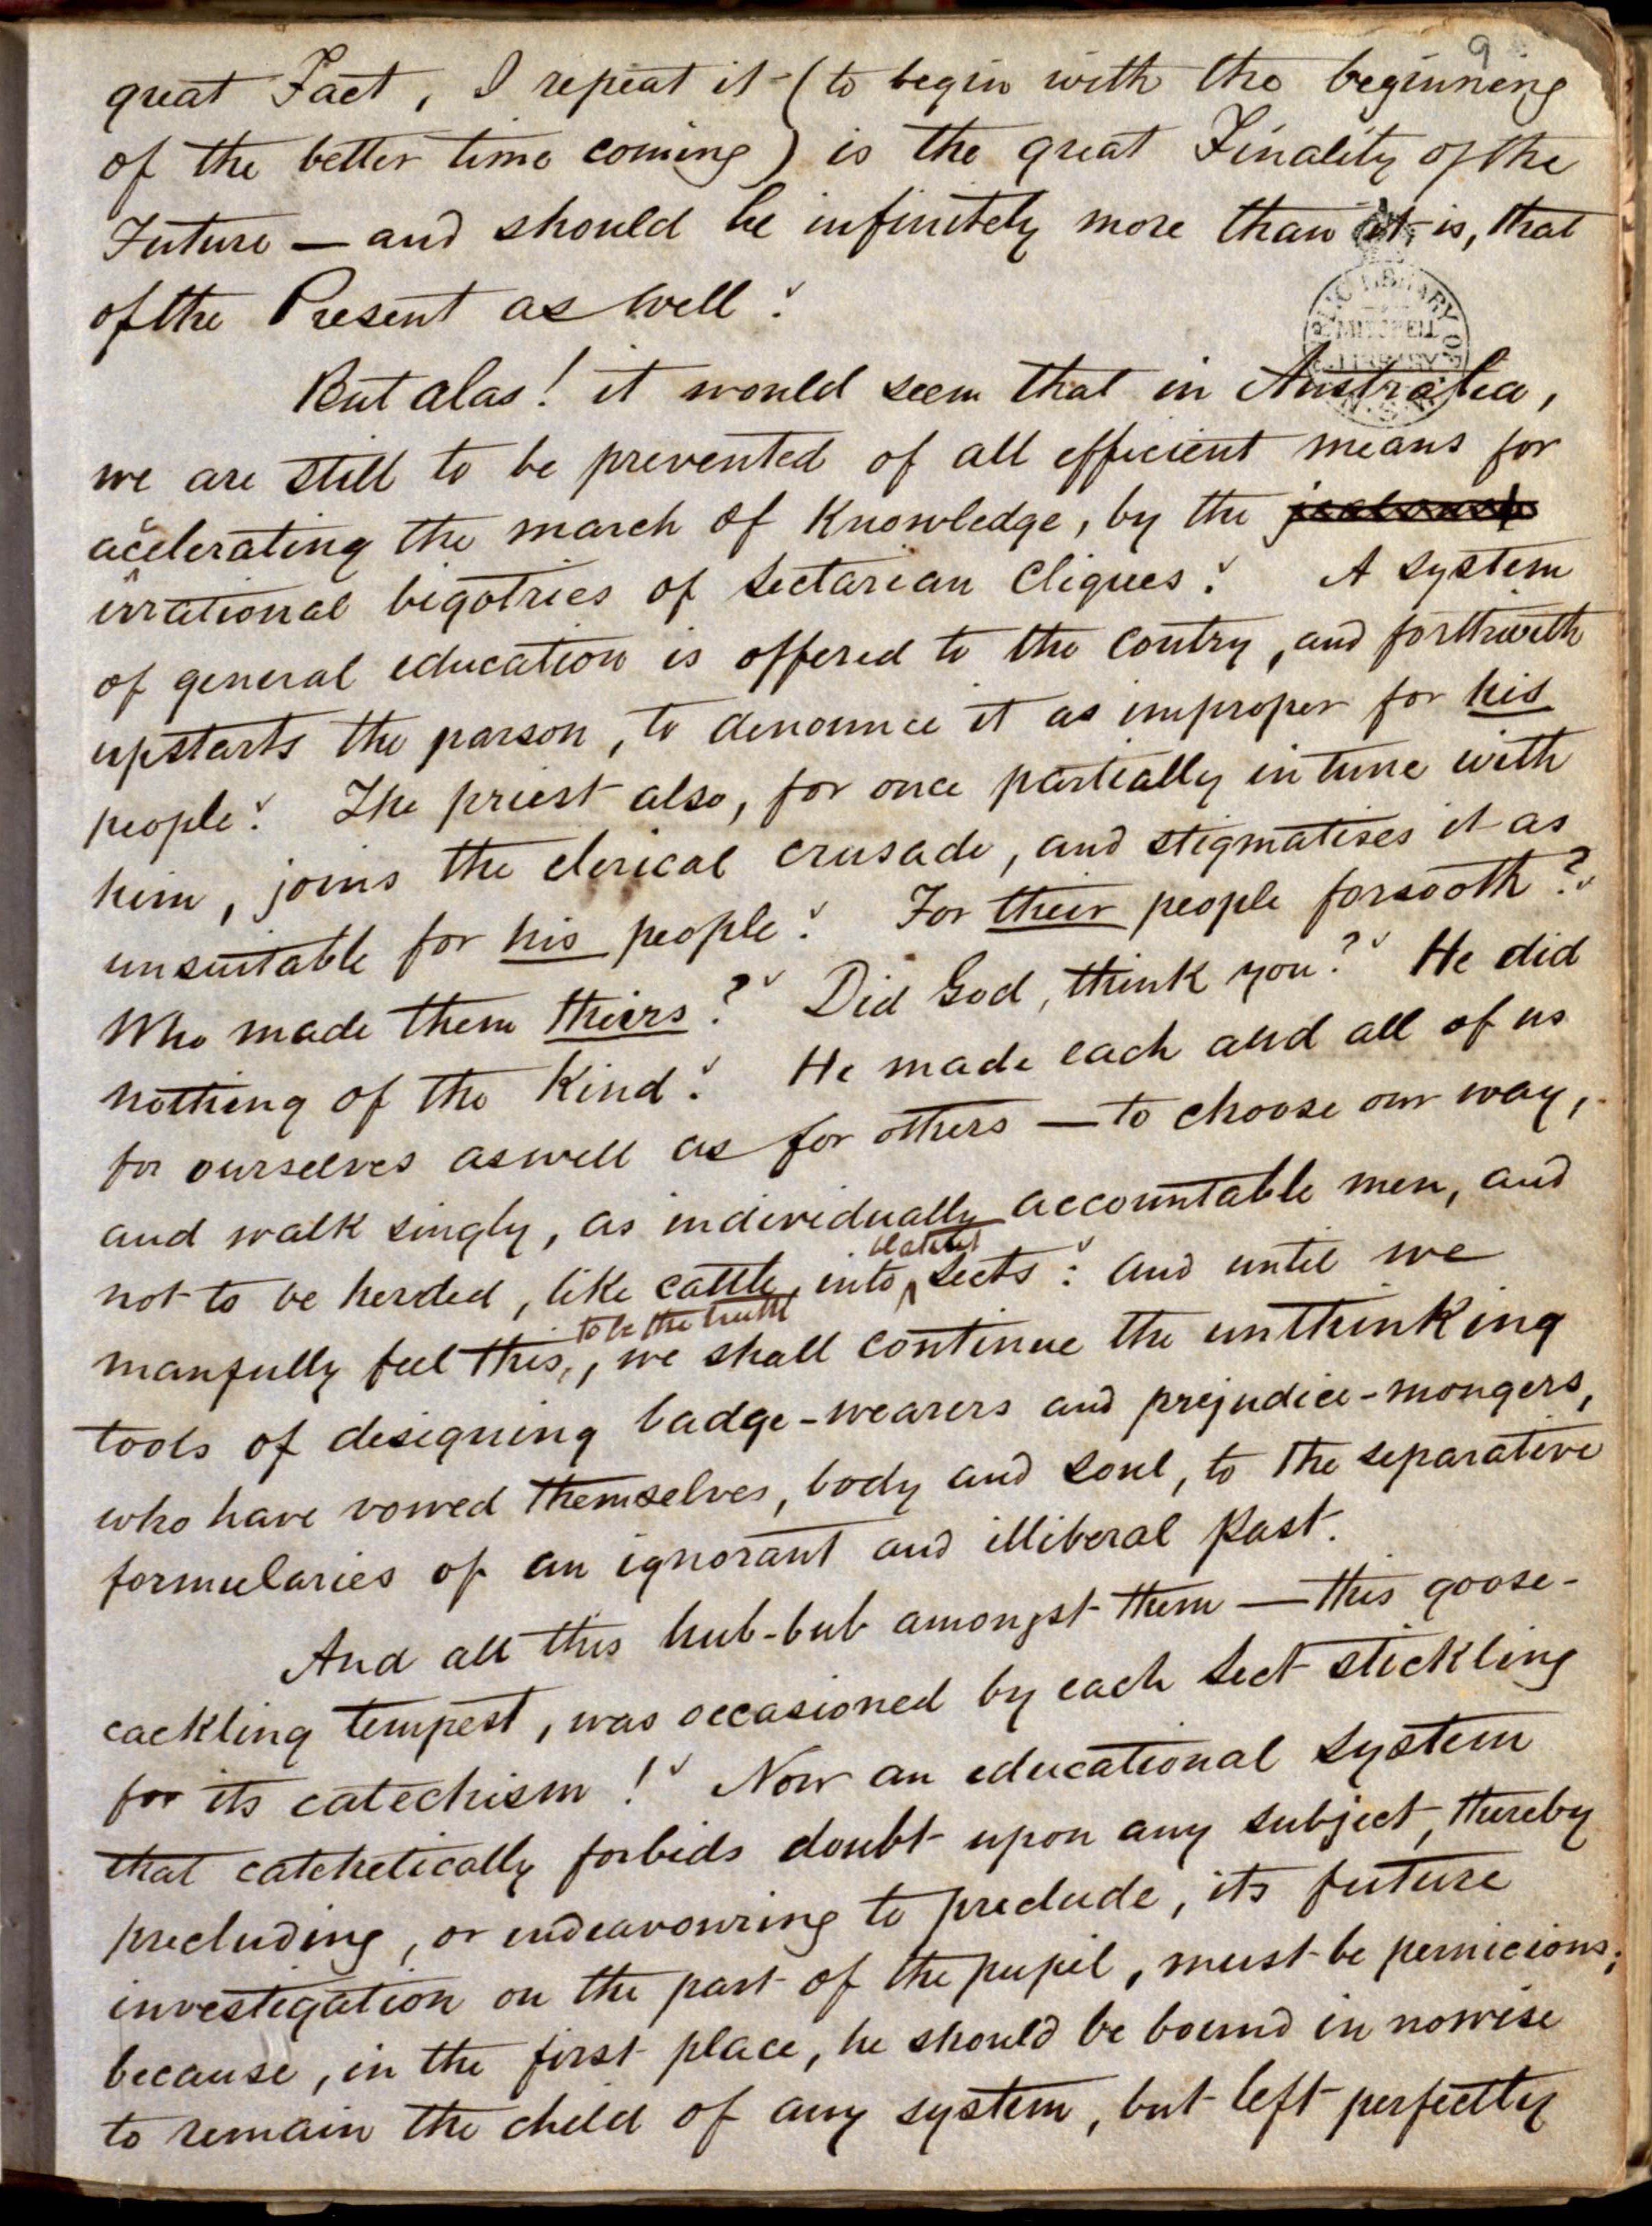 9
great Fact, I repeat it - (to begin with the beginning
of the better time coming) is the great Finality of the
Future — and should be infinitely more than it is, that
of the Present as well.
But alas! it would seem that in Australia,
we are still to be prevented of all efficient means for
accelerating the march of Knowledge, by the
irrational bigotries of Sectarian Cliques. A system
of general education is offered to the contry, and forthwith
upstarts the parson, to denounce it as improper for his
people. The priest also, for once partially in tune with
him, joins the clerical crusade, and stigmatises it as
unsuitable for his people. For their people forsooth?
Who made them theirs? Did God, think you? He did
nothing of the Kind. He made each and all of us
for ourselves aswell as for others — to choose our way,
and walk singly, as individually accountable men, and
not to be herded, like cattle, into blatant Sects: and until we
manfully feel this, to be the truth, we shall continue the unthinking
tools of designing badge-wearers and prejudice-mongers,
who have vowed themselves, body and soul, to the separative
formularies of an ignorant and illiberal Past.
And all this hub-bub amongst them — this goose-
cackling tempest, was occasioned by each Sect stickling
for its catechism! Now an educational system
that catehetically forbids doubt upon any subject, thereby
precluding, or endeavouring to preclude, its future
investigation on the part of the pupil, must be pernicious;
because, in the first place, he should be bound in nowise
to remain the child of any system, but left perfectly
PUBLIC LIBRARY OF
MITCHELL
LIBRARY
N.S.W.